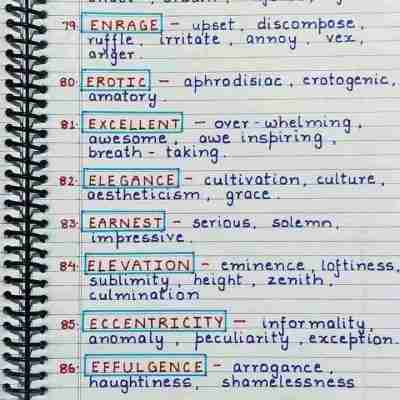 79. ENRAGE - upset, discompose,
ruffle, irritate, annoy, vex,
anger.
80. EROTIC - aphrodisiac, erotogenic,
amatory.
81. EXCELLENT - over-whelming,
awesome, awe inspiring,
breath-taking.
82. ELEGANCE - cultivation, culture,
aestheticism, grace.
83. EARNEST - serious, solemn,
impressive.
84. ELEVATION - eminence, loftiness,
sublimity, height, zenith,
culmination
85. ECCENTRICITY - informality,
anomaly, peculiarity, exception.
86. EFFULGENCE - arrogance,
haughtiness, shamelessness